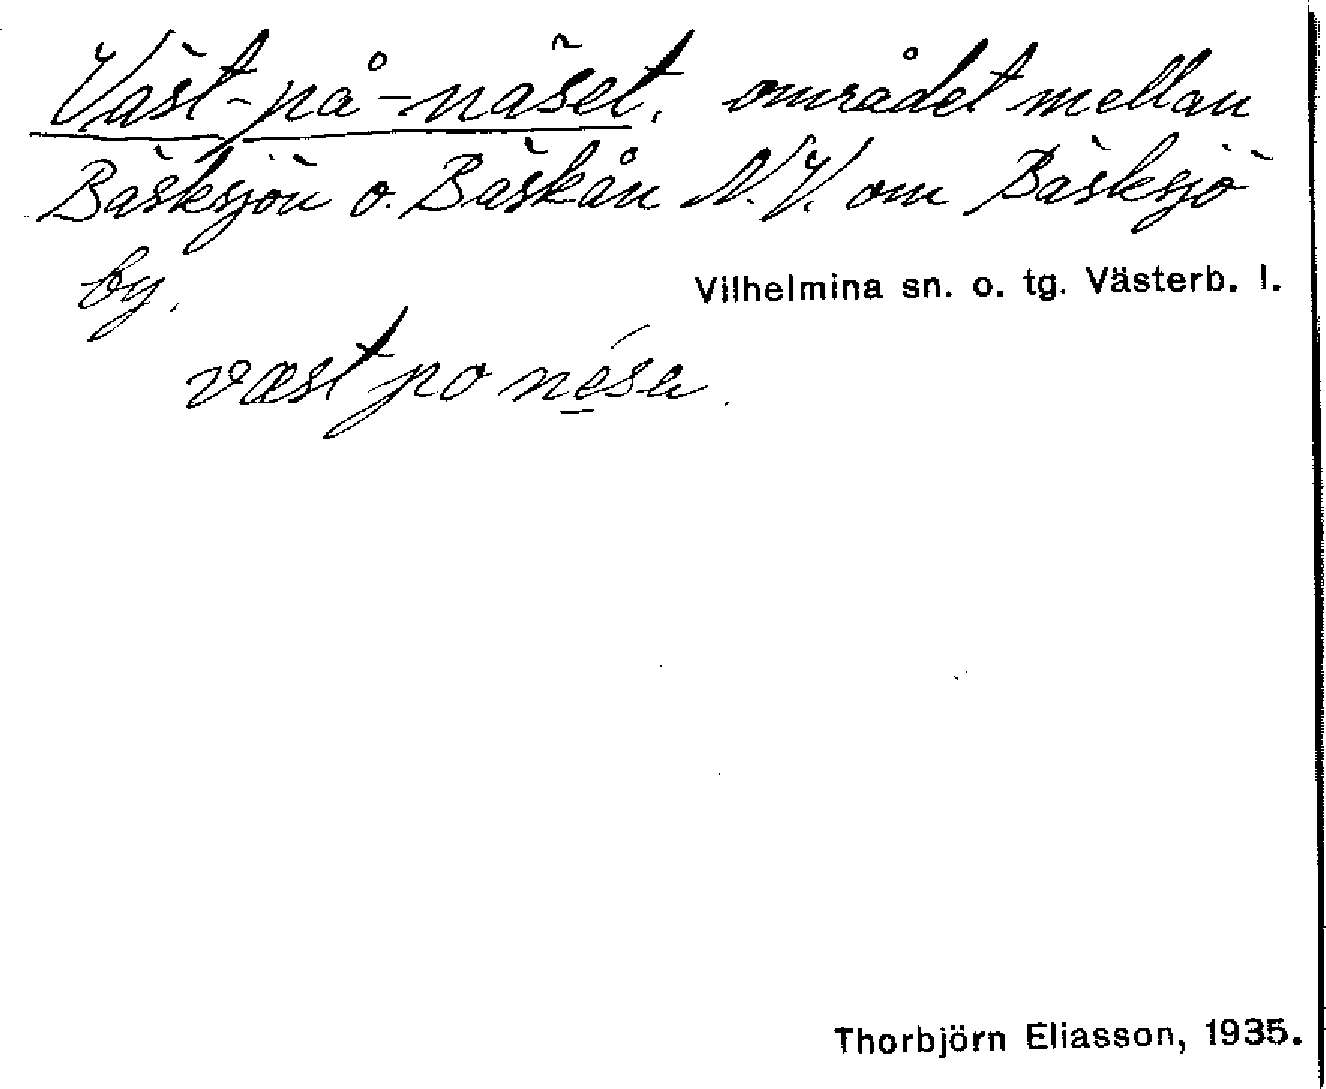 Väst-på-näset, området mellan
Bäsksjön o. Bäskån N.V. om Bäsksjö
by.
Vilhelmina sn. o. tg. Västerb. l.
væst po nésa.
Thorbjörn Eliasson, 1935.